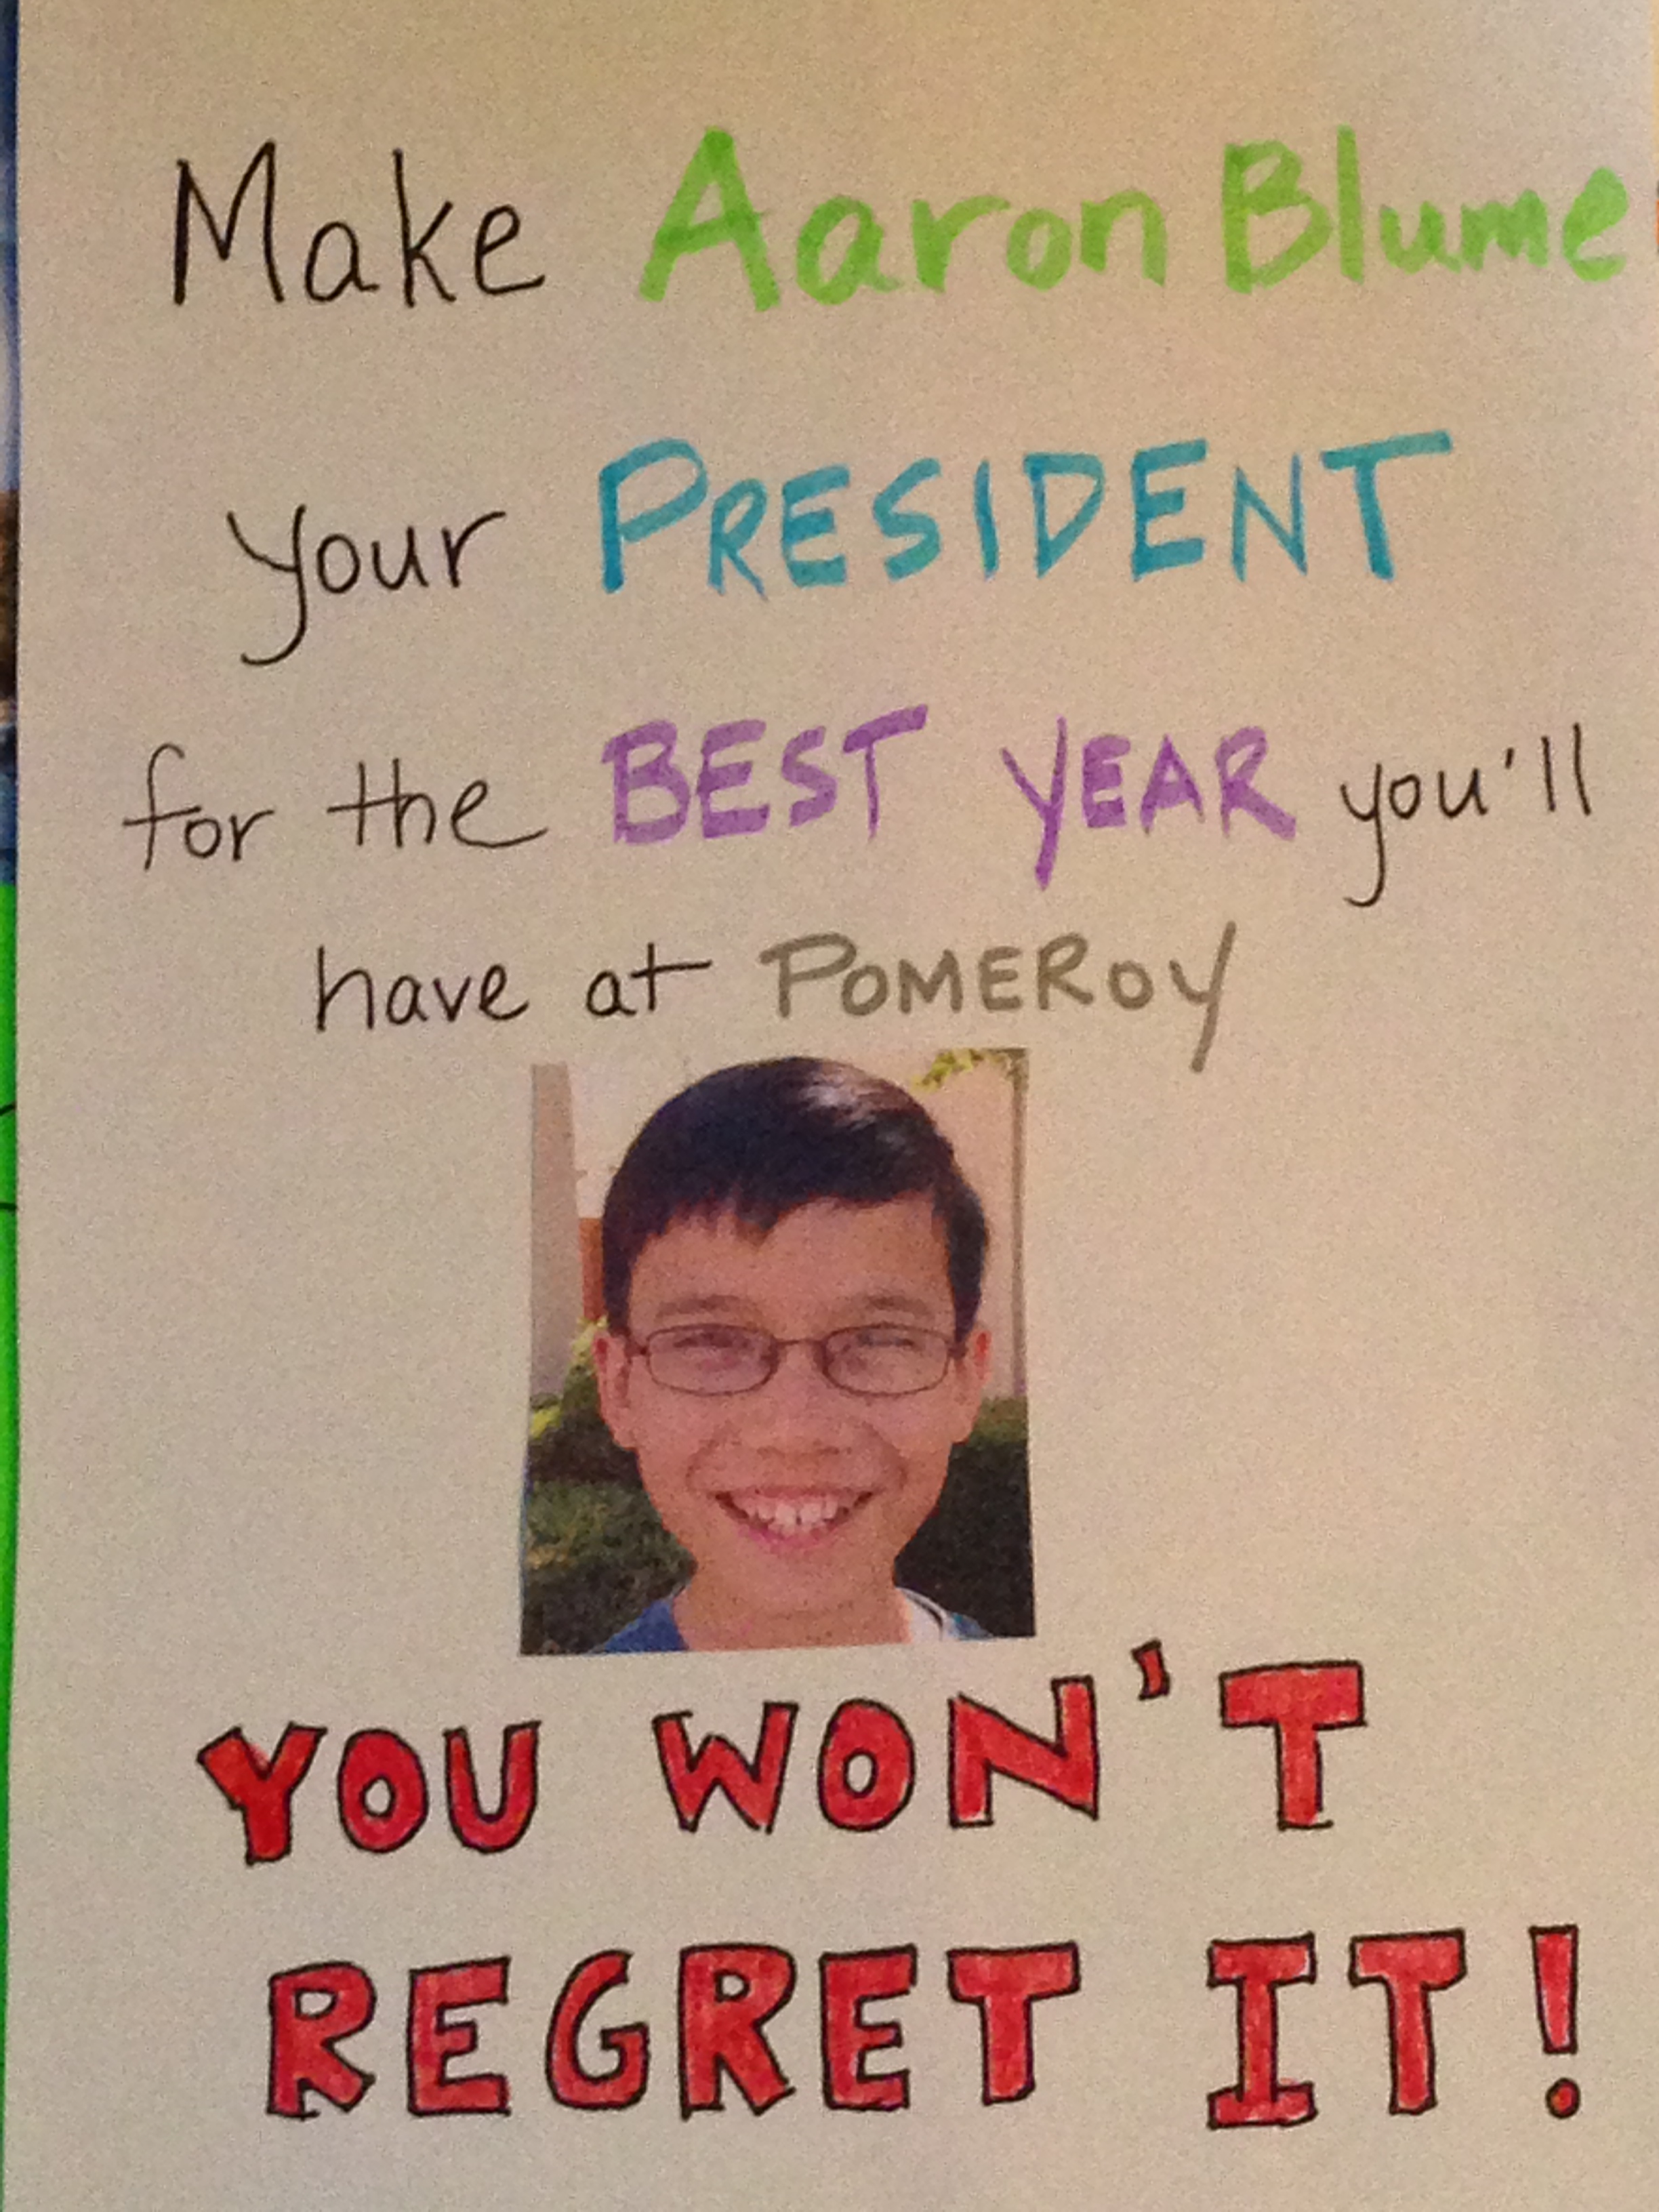 Make Aaron Blume
your PRESIDENT
for the BEST YEAR you'll
have at POMEROY
YOU WON'T
REGRET IT!